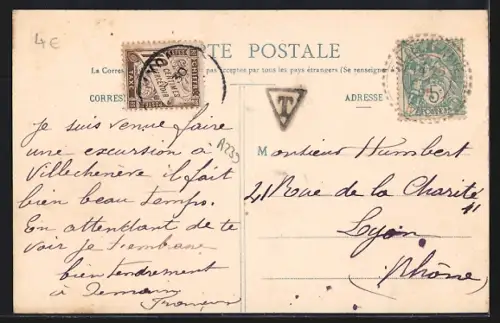 4€
CARTE POSTALE
La Corres pas acceptée par tous les pays étrangers (Se renseigner à
CORRES
ADRESSE
T
A239
Je suis venue faire
une excursion à
Villechenève il fait
bien beau temps.
En attendant de te
voir je t'embrasse
bien tendrement
à demain
Monsieur Humbert
41 Rue de la Charité
41
Lyon
(Rhône)